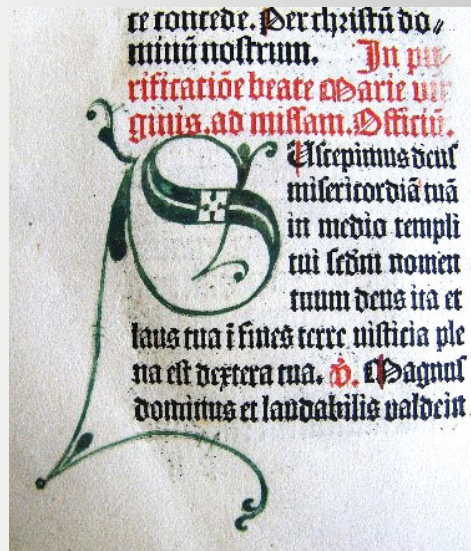 te concede. Per christū do⸗
minū nostrum. In pu⸗
rificatiōe beate Marie vir
ginis. ad missam. Officiū.
SUscepimus deus
misericordiā tuā
in medio templi
tui scdm nomen
tuum deus ita et
laus tua ī fines terre iusticia ple
na est dextera tua. V. Magnus
dominus et laudabilis valde in